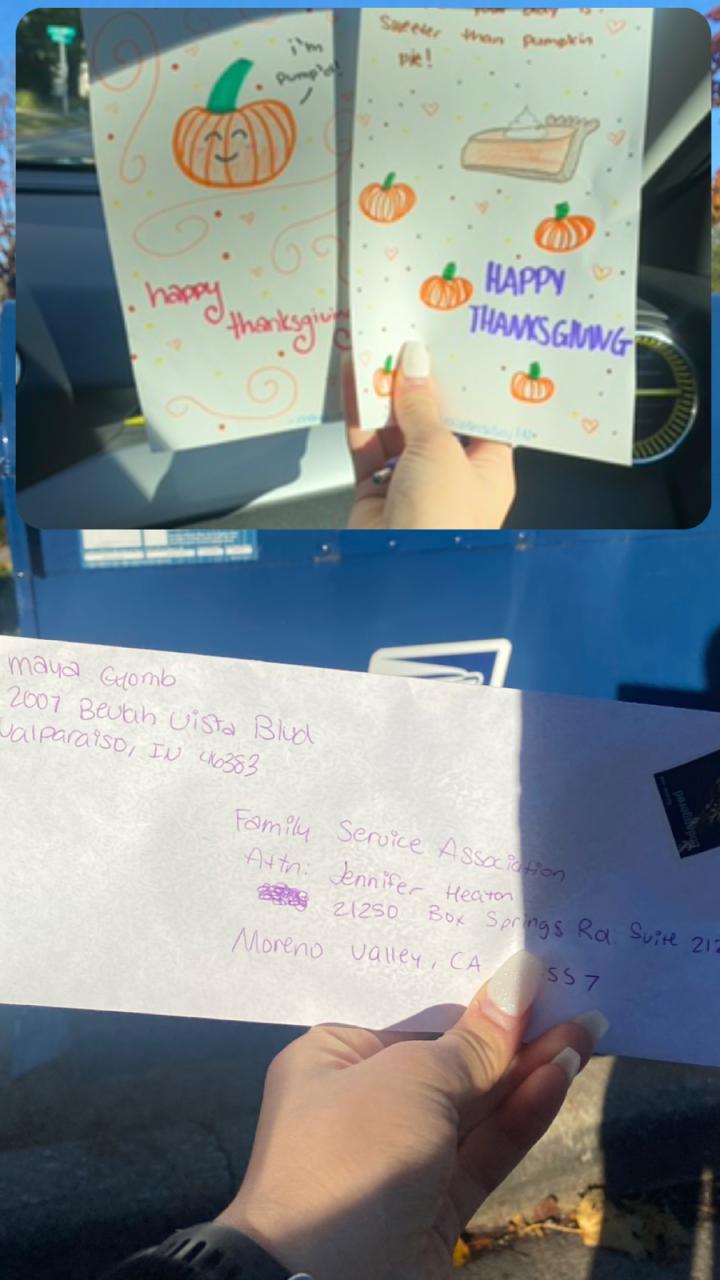 i'm
pump'd!
happy
thanksgiving
your day is
Sweeter than pumpkin
pie!
HAPPY
THANKSGIVING
maya
2007 Beulah Vista Blvd
Valparaiso, IN 46383
Family Service Association
Attn: Jennifer Heaton
21250 Box Springs Rd. Suite 212
Moreno Valley, CA 557